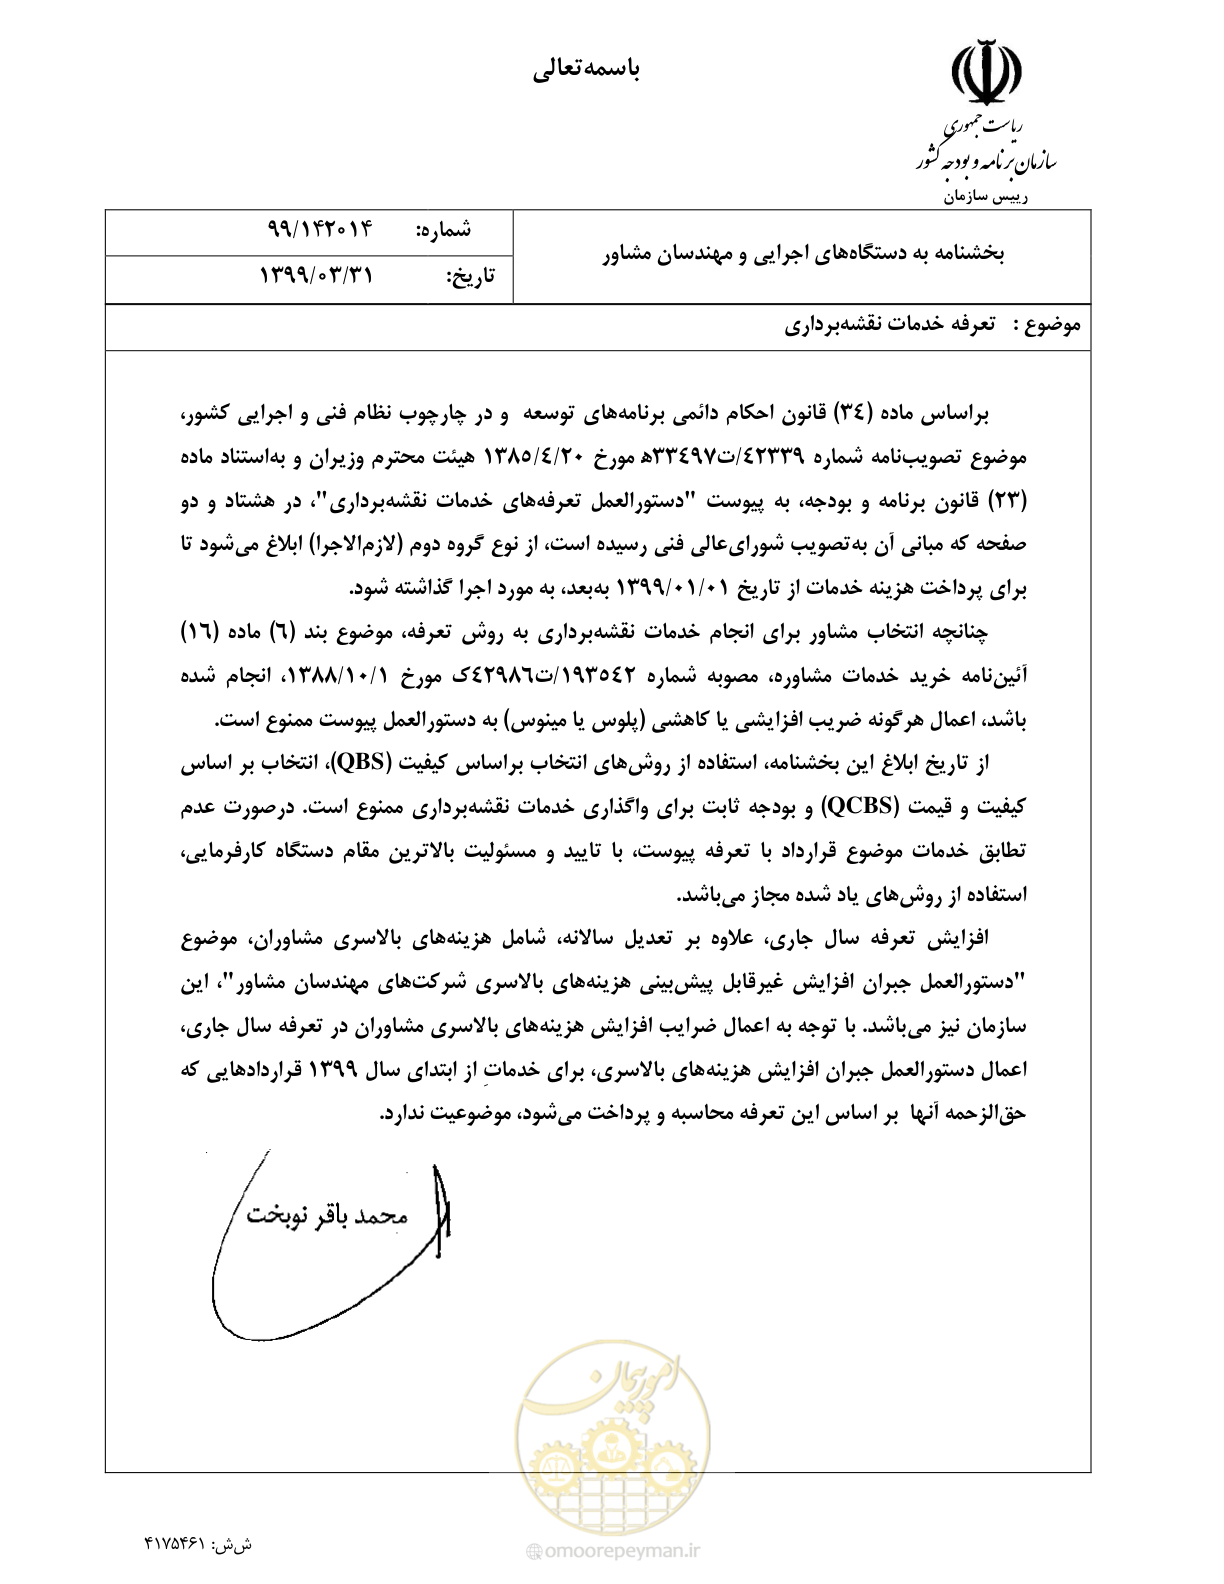 باسمه‌تعالی
ریاست جمهوری
سازمان برنامه و بودجه کشور
رییس سازمان
بخشنامه به دستگاه‌های اجرایی و مهندسان مشاور
شماره: ۹۹/۱۴۲۰۱۴
تاریخ: ۱۳۹۹/۰۳/۳۱
موضوع : تعرفه خدمات نقشه‌برداری
براساس ماده (٣٤) قانون احکام دائمی برنامه‌های توسعه و در چارچوب نظام فنی و اجرایی کشور،
موضوع تصویب‌نامه شماره ٤٢٣٣٩/ت٣٣٤٩٧ه‍ مورخ ١٣٨٥/٤/٢٠ هیئت محترم وزیران و به‌استناد ماده
(٢٣) قانون برنامه و بودجه، به پیوست "دستورالعمل تعرفه‌های خدمات نقشه‌برداری"، در هشتاد و دو
صفحه که مبانی آن به‌تصویب شورای‌عالی فنی رسیده است، از نوع گروه دوم (لازم‌الاجرا) ابلاغ می‌شود تا
برای پرداخت هزینه خدمات از تاریخ ١٣٩٩/٠١/٠١ به‌بعد، به مورد اجرا گذاشته شود.
چنانچه انتخاب مشاور برای انجام خدمات نقشه‌برداری به روش تعرفه، موضوع بند (٦) ماده (١٦)
آئین‌نامه خرید خدمات مشاوره، مصوبه شماره ١٩٣٥٤٢/ت٤٢٩٨٦ک مورخ ١٣٨٨/١٠/١، انجام شده
باشد، اعمال هرگونه ضریب افزایشی یا کاهشی (پلوس یا مینوس) به دستورالعمل پیوست ممنوع است.
از تاریخ ابلاغ این بخشنامه، استفاده از روش‌های انتخاب براساس کیفیت (QBS)، انتخاب بر اساس
کیفیت و قیمت (QCBS) و بودجه ثابت برای واگذاری خدمات نقشه‌برداری ممنوع است. درصورت عدم
تطابق خدمات موضوع قرارداد با تعرفه پیوست، با تایید و مسئولیت بالاترین مقام دستگاه کارفرمایی،
استفاده از روش‌های یاد شده مجاز می‌باشد.
افزایش تعرفه سال جاری، علاوه بر تعدیل سالانه، شامل هزینه‌های بالاسری مشاوران، موضوع
"دستورالعمل جبران افزایش غیرقابل پیش‌بینی هزینه‌های بالاسری شرکت‌های مهندسان مشاور"، این
سازمان نیز می‌باشد. با توجه به اعمال ضرایب افزایش هزینه‌های بالاسری مشاوران در تعرفه سال جاری،
اعمال دستورالعمل جبران افزایش هزینه‌های بالاسری، برای خدماتِ از ابتدای سال ١٣٩٩ قراردادهایی که
حق‌الزحمه آنها بر اساس این تعرفه محاسبه و پرداخت می‌شود، موضوعیت ندارد.
محمد باقر نوبخت
امور پیمان
ش‌ش: ۴۱۷۵۴۶۱
omoorepeyman.ir